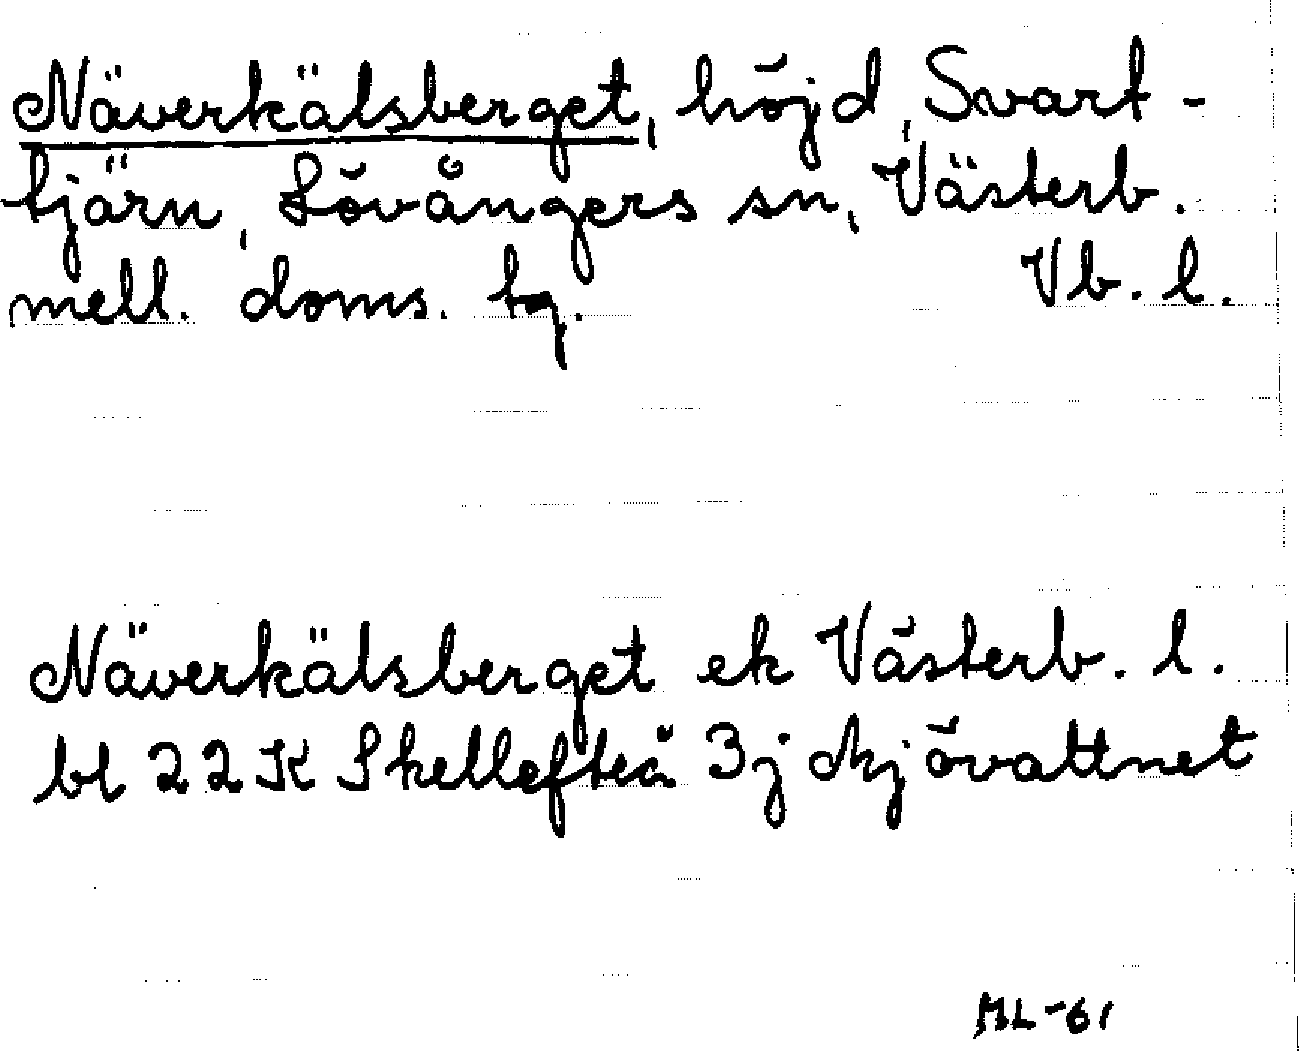 Näverkälsberget, höjd, Svart-
tjärn, Lövångers sn, Västerb.
mell. doms. tg. Vb. l.
Näverkälsberget ek Västerb. l.
bl 22K Skellefteå 3j Mjövattnet
ML-61